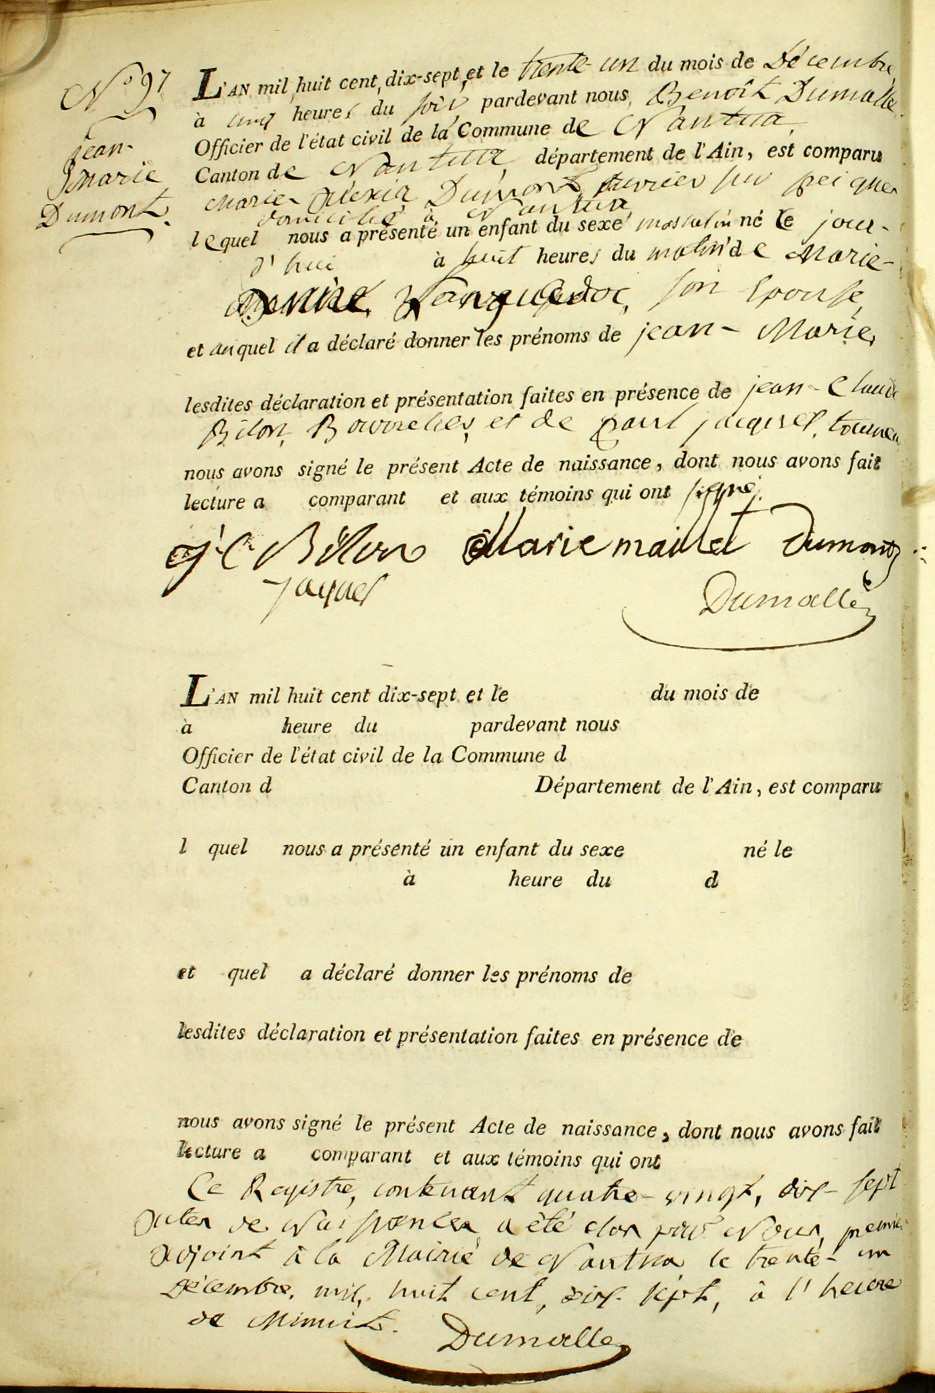 N° 97
jean-
Marie
Dumont
L'AN mil huit cent dix-sept et le trente un du mois de Décembre
à cinq heures du soir pardevant nous, Benoît Dumalle
Officier de l'état civil de la Commune de Nantua,
Canton de Nantua, département de l'Ain, est comparu
Marie- Dumont, ouvrier sur peignes
domicilié à Nantua
lequel nous a présenté un enfant du sexe masculin né le jour-
d'hui à huit heures du matin de Marie-
Languedoc, son Epouse,
et auquel il a déclaré donner les prénoms de jean- Marie,
lesdites déclaration et présentation faites en présence de jean-Claude
Bilon, Bourrelier, et de Paul jacquet, tourneur
nous avons signé le présent Acte de naissance, dont nous avons fait
lecture a comparant et aux témoins qui ont signé.
j C Bilon Marie Dumont
Jaquet Dumalle
L'AN mil huit cent dix-sept et le du mois de
à heure du pardevant nous
Officier de l'état civil de la Commune d
Canton d Département de l'Ain, est comparu
l quel nous a présenté un enfant du sexe né le
à heure du d
et quel a déclaré donner les prénoms de
lesdites déclaration et présentation faites en présence de
nous avons signé le présent Acte de naissance, dont nous avons fait
lecture a comparant et aux témoins qui ont
Ce Registre, contenant quatre-vingt, dix-sept
actes de Naissances a été clos par Nous, premier
adjoint à la Mairie de Nantua le trente-un
Décembre, mil, huit cent, dix-sept, à l'heure
de Minuit. Dumalle